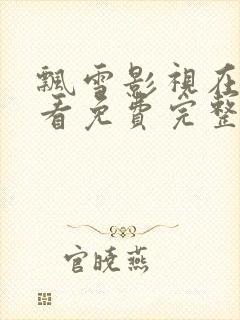 飄雪影視在
看免費完整
官曉燕